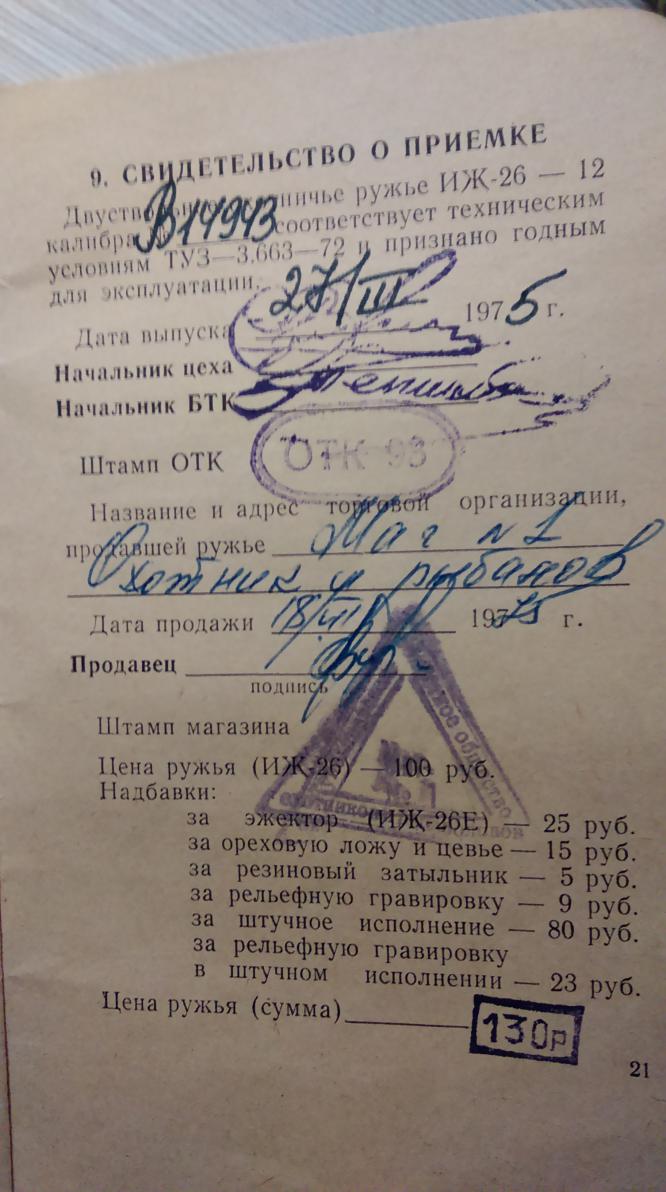 9. СВИДЕТЕЛЬСТВО О ПРИЕМКЕ
ружье ИЖ-26 — 12
калибра В14943 соответствует техническим
условиям ТУЗ—3.663—72 и признано годным
для эксплуатации.
Дата выпуска 27/III 1975 г.
Начальник цеха
Начальник БТК
Штамп ОТК ОТК 93
Название и адрес торговой организации,
продавшей ружье Маг N1
Охотник и рыболов
Дата продажи 18/VII 1975 г.
Продавец
подпись
Штамп магазина
Цена ружья (ИЖ-26) — 100 руб.
Надбавки:
за эжектор (ИЖ-26Е) — 25 руб.
за ореховую ложу и цевье — 15 руб.
за резиновый затыльник — 5 руб.
за рельефную гравировку — 9 руб.
за штучное исполнение — 80 руб.
за рельефную гравировку
в штучном исполнении — 23 руб.
Цена ружья (сумма) 130р
21